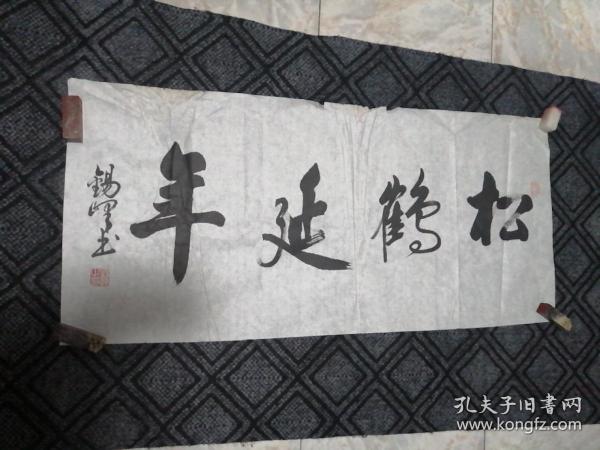 松鹤延年
锡峄书
孔夫子旧书网
www.kongfz.com